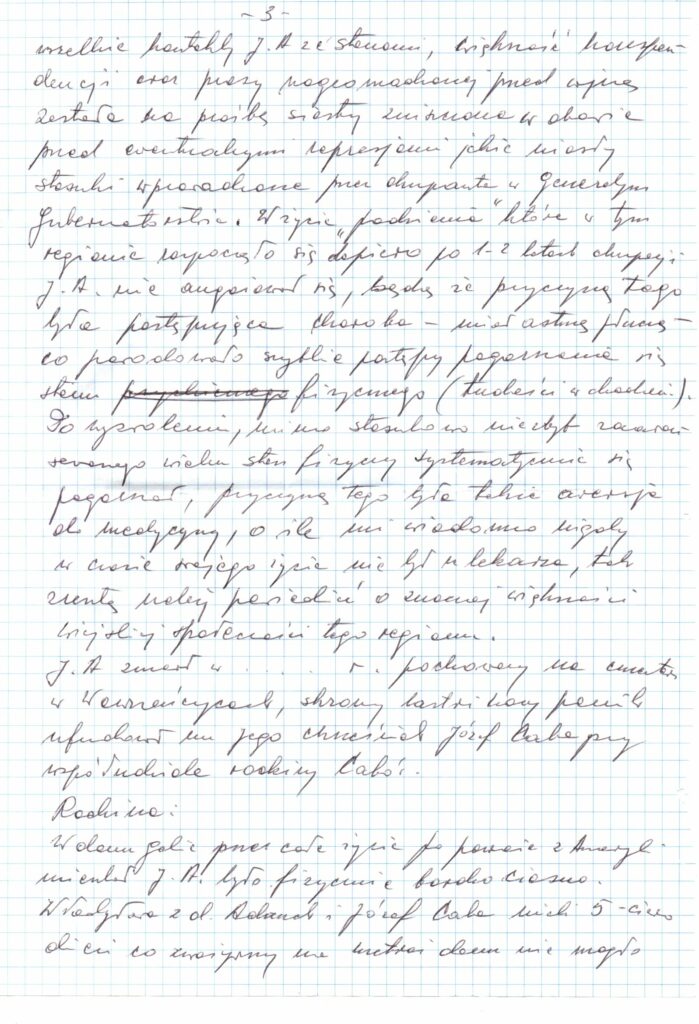 - 3 -
wszelkie kontakty J.A ze stanami, większość korespon-
dencji oraz prasy nagromadzonej przed wojną
została na prośbę siostry zniszczona w obawie
przed ewentualnymi represjami jakie niosły
stosunki wprowadzone przez okupanta w Generalnym
Gubernatorstwie. W życie „podziemia" które w tym
regionie rozpoczęło się dopiero po 1-2 latach okupacji
J.A. nie angażował się, bądź że przyczyną tego
była postępująca choroba - miał astmę płucną -
co powodowało szybkie postępy pogarszania się
stanu psychicznego fizycznego (trudności w chodzeniu).
Po wyzwoleniu, mimo stosunkowo niezbyt zaawan-
sowanego wieku stan fizyczny systematycznie się
pogarszał, przyczyną tego była także awersja
do medycyny, o ile mi wiadomo nigdy
w czasie swojego życia nie był u lekarza, tak
zresztą należy powiedzieć o znacznej większości
wiejskiej społeczności tego regionu.
J.A zmarł w . . . . . r. pochowany na cmentarzu
w Wawrzeńczycach, skromny lastrikowy pomnik
ufundował mu jego chrześniak Józef Caba przy
współudziale rodziny Cabów.
Rodzina:
W domu gdzie przez całe życie po powrocie z Ameryki
mieszkał J.A. było fizycznie bardzo ciasno.
Władysława z d. Adamek i Józef Caba mieli 5-cioro
dzieci co zważywszy na metraż domu nie mogło